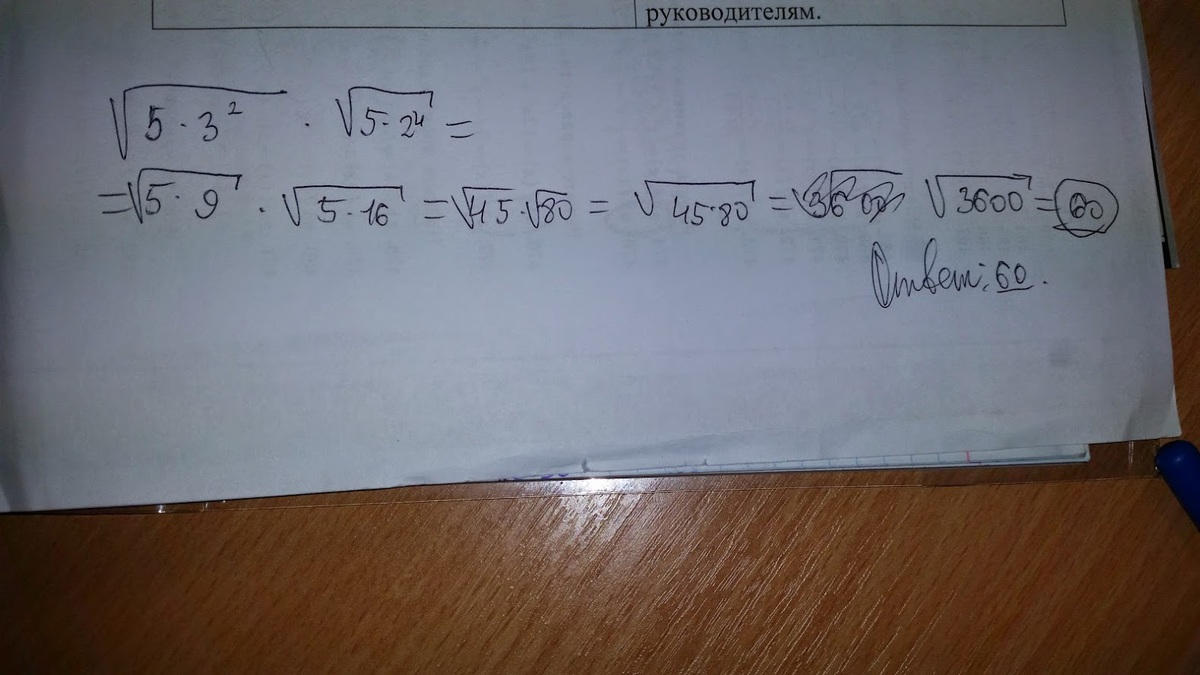 руководителям.
√(5·3²) · √(5·2⁴) =
= √(5·9) · √(5·16) = √45·√80 = √(45·80) = √3600 = 60
Ответ: 60.